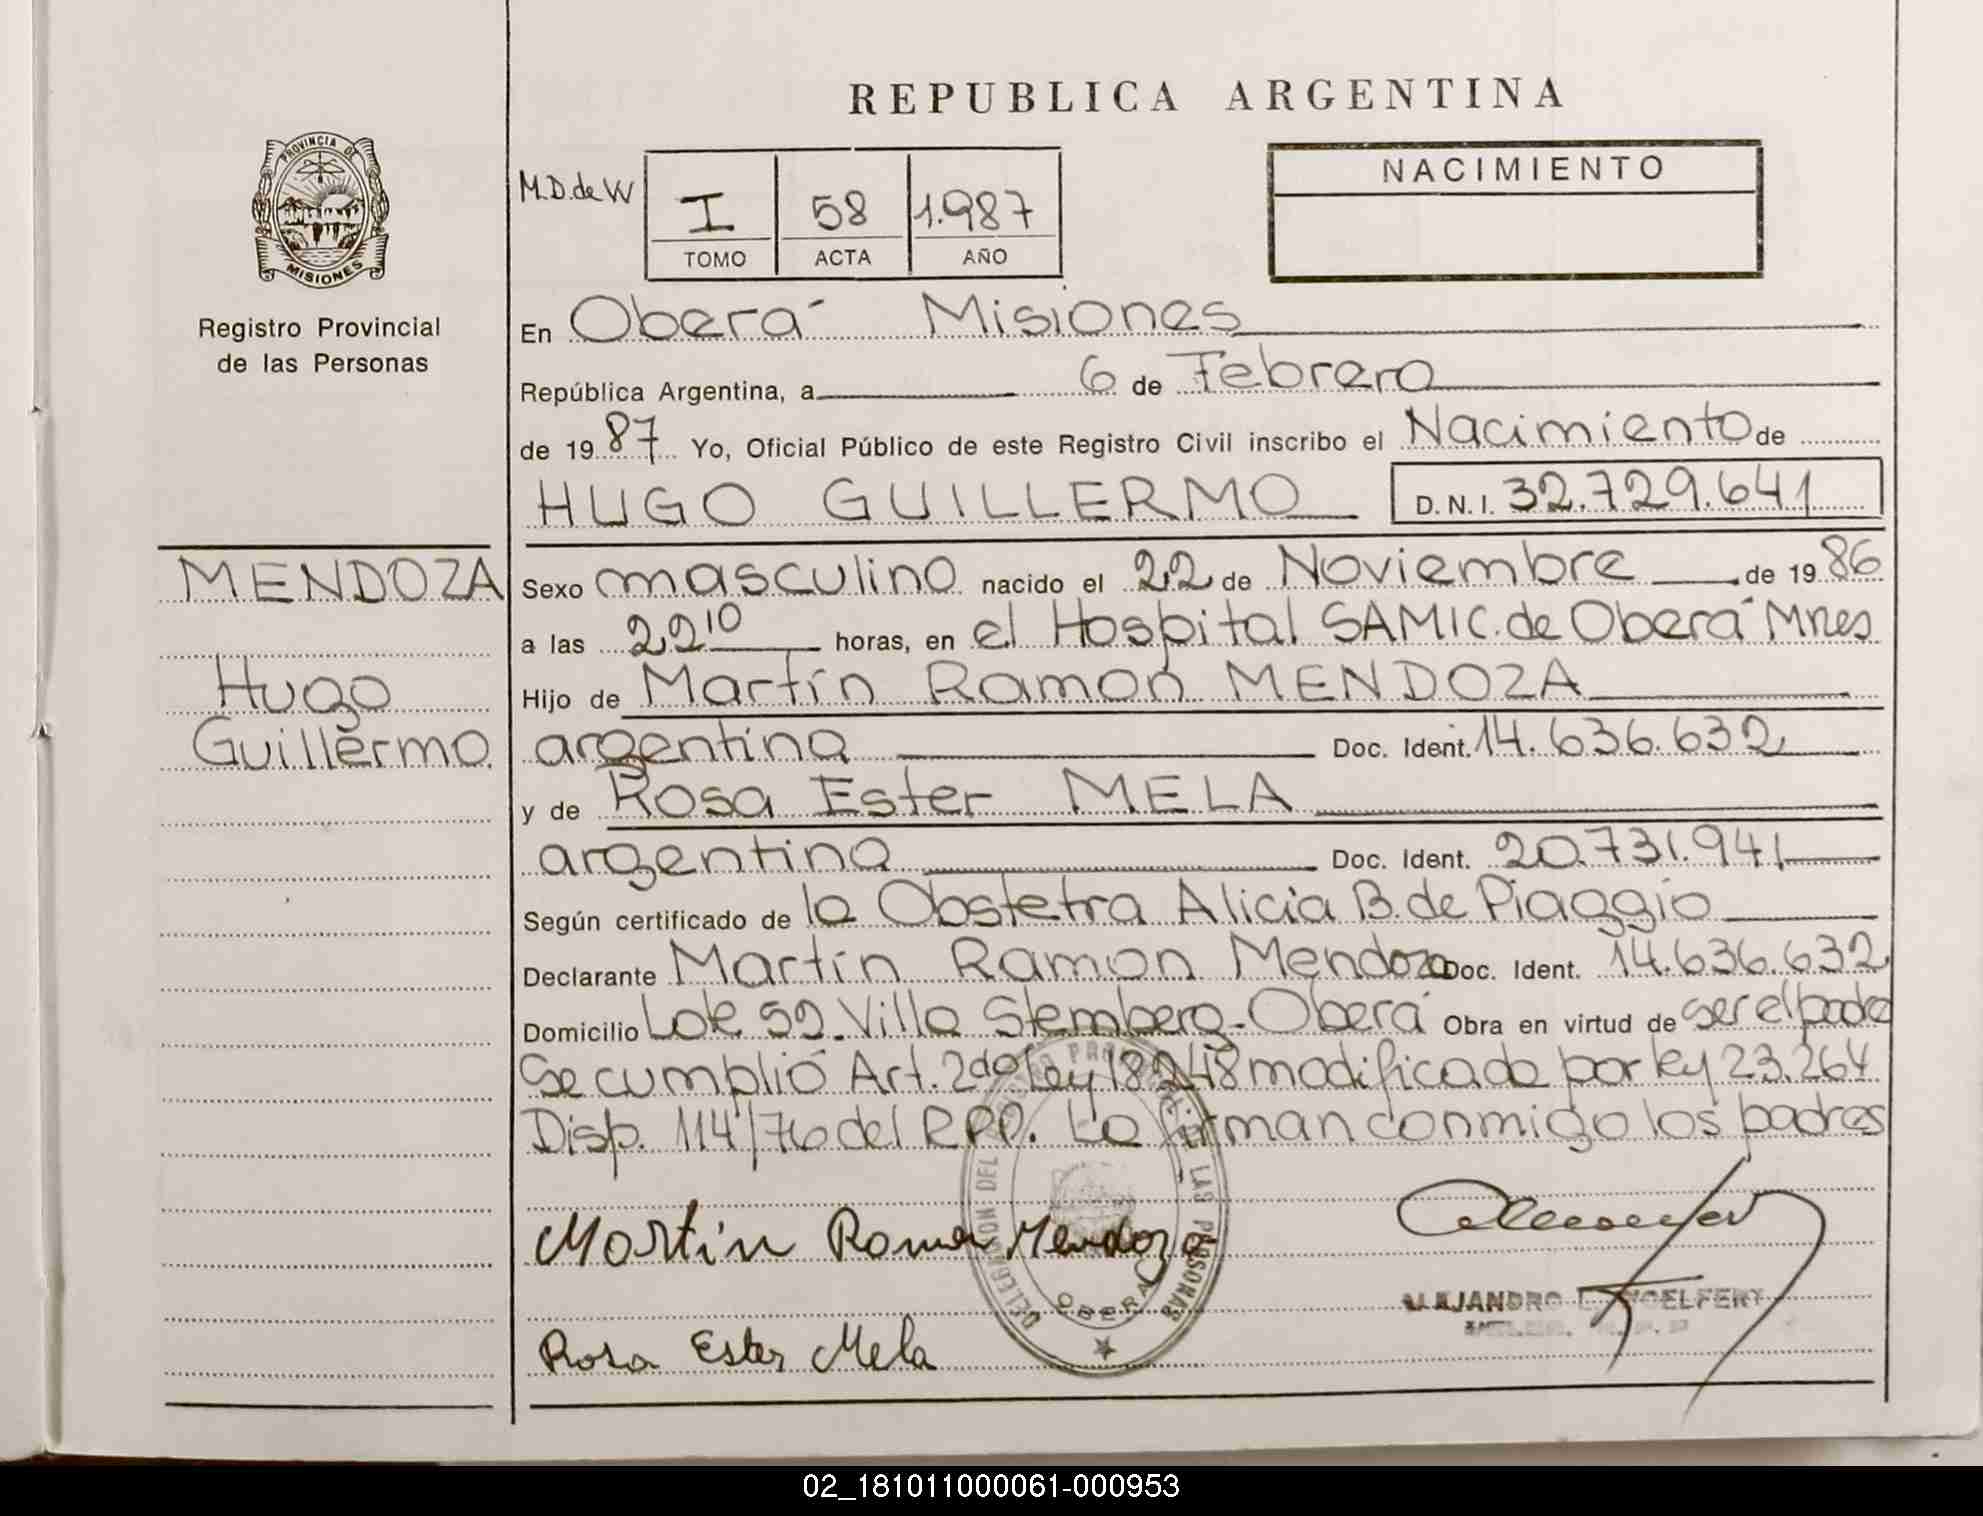 REPUBLICA ARGENTINA
PROVINCIA DE
MISIONES
Registro Provincial
de las Personas
M.D.de W
I 58 1.987
TOMO ACTA AÑO
NACIMIENTO
En Oberá Misiones
República Argentina, a 6 de Febrero
de 1987 Yo, Oficial Público de este Registro Civil inscribo el Nacimiento de
HUGO GUILLERMO D.N.I. 32.729.641
MENDOZA
Hugo
Guillermo
Sexo masculino nacido el 22 de Noviembre de 1986
a las 22 10 horas, en el Hospital SAMIC. de Oberá Mnes
Hijo de Martín Ramon MENDOZA
argentina Doc. Ident. 14.636.632
y de Rosa Ester MELA
argentina Doc. Ident. 20.731.941
Según certificado de la Obstetra Alicia B. de Piaggio
Declarante Martín Ramon Mendoza Doc. Ident. 14.636.632
Domicilio Lote 52 Villa Stemberg-Oberá Obra en virtud de ser el padre
Se cumplió Art. 2do Ley 18248 modificado por ley 23.264
Disp. 114/76 del RPP. La firman conmigo los padres
Martin Ramon Mendoza
Rosa Ester Mela
DELEGACION DEL REGISTRO PROVINCIAL DE LAS PERSONAS
OBERA
ALEJANDRO
02_181011000061-000953